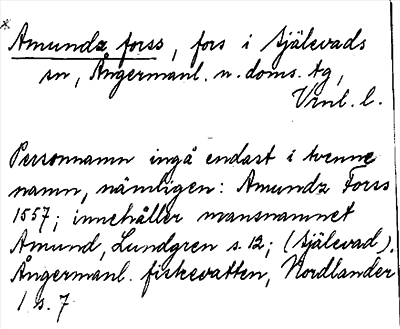 * Amundz forss, fors i Själevads
sn, Ångermanl. n. doms. tg,
Vnl. l.
Personnamn ingå endast i tvenne
namn, nämligen: Amundz Forss
1557; innehåller mansnamnet
Amund, Lundgren s. 12; (Själevad).
Ångermanl. fiskevatten, Nordlander
1 s. 7